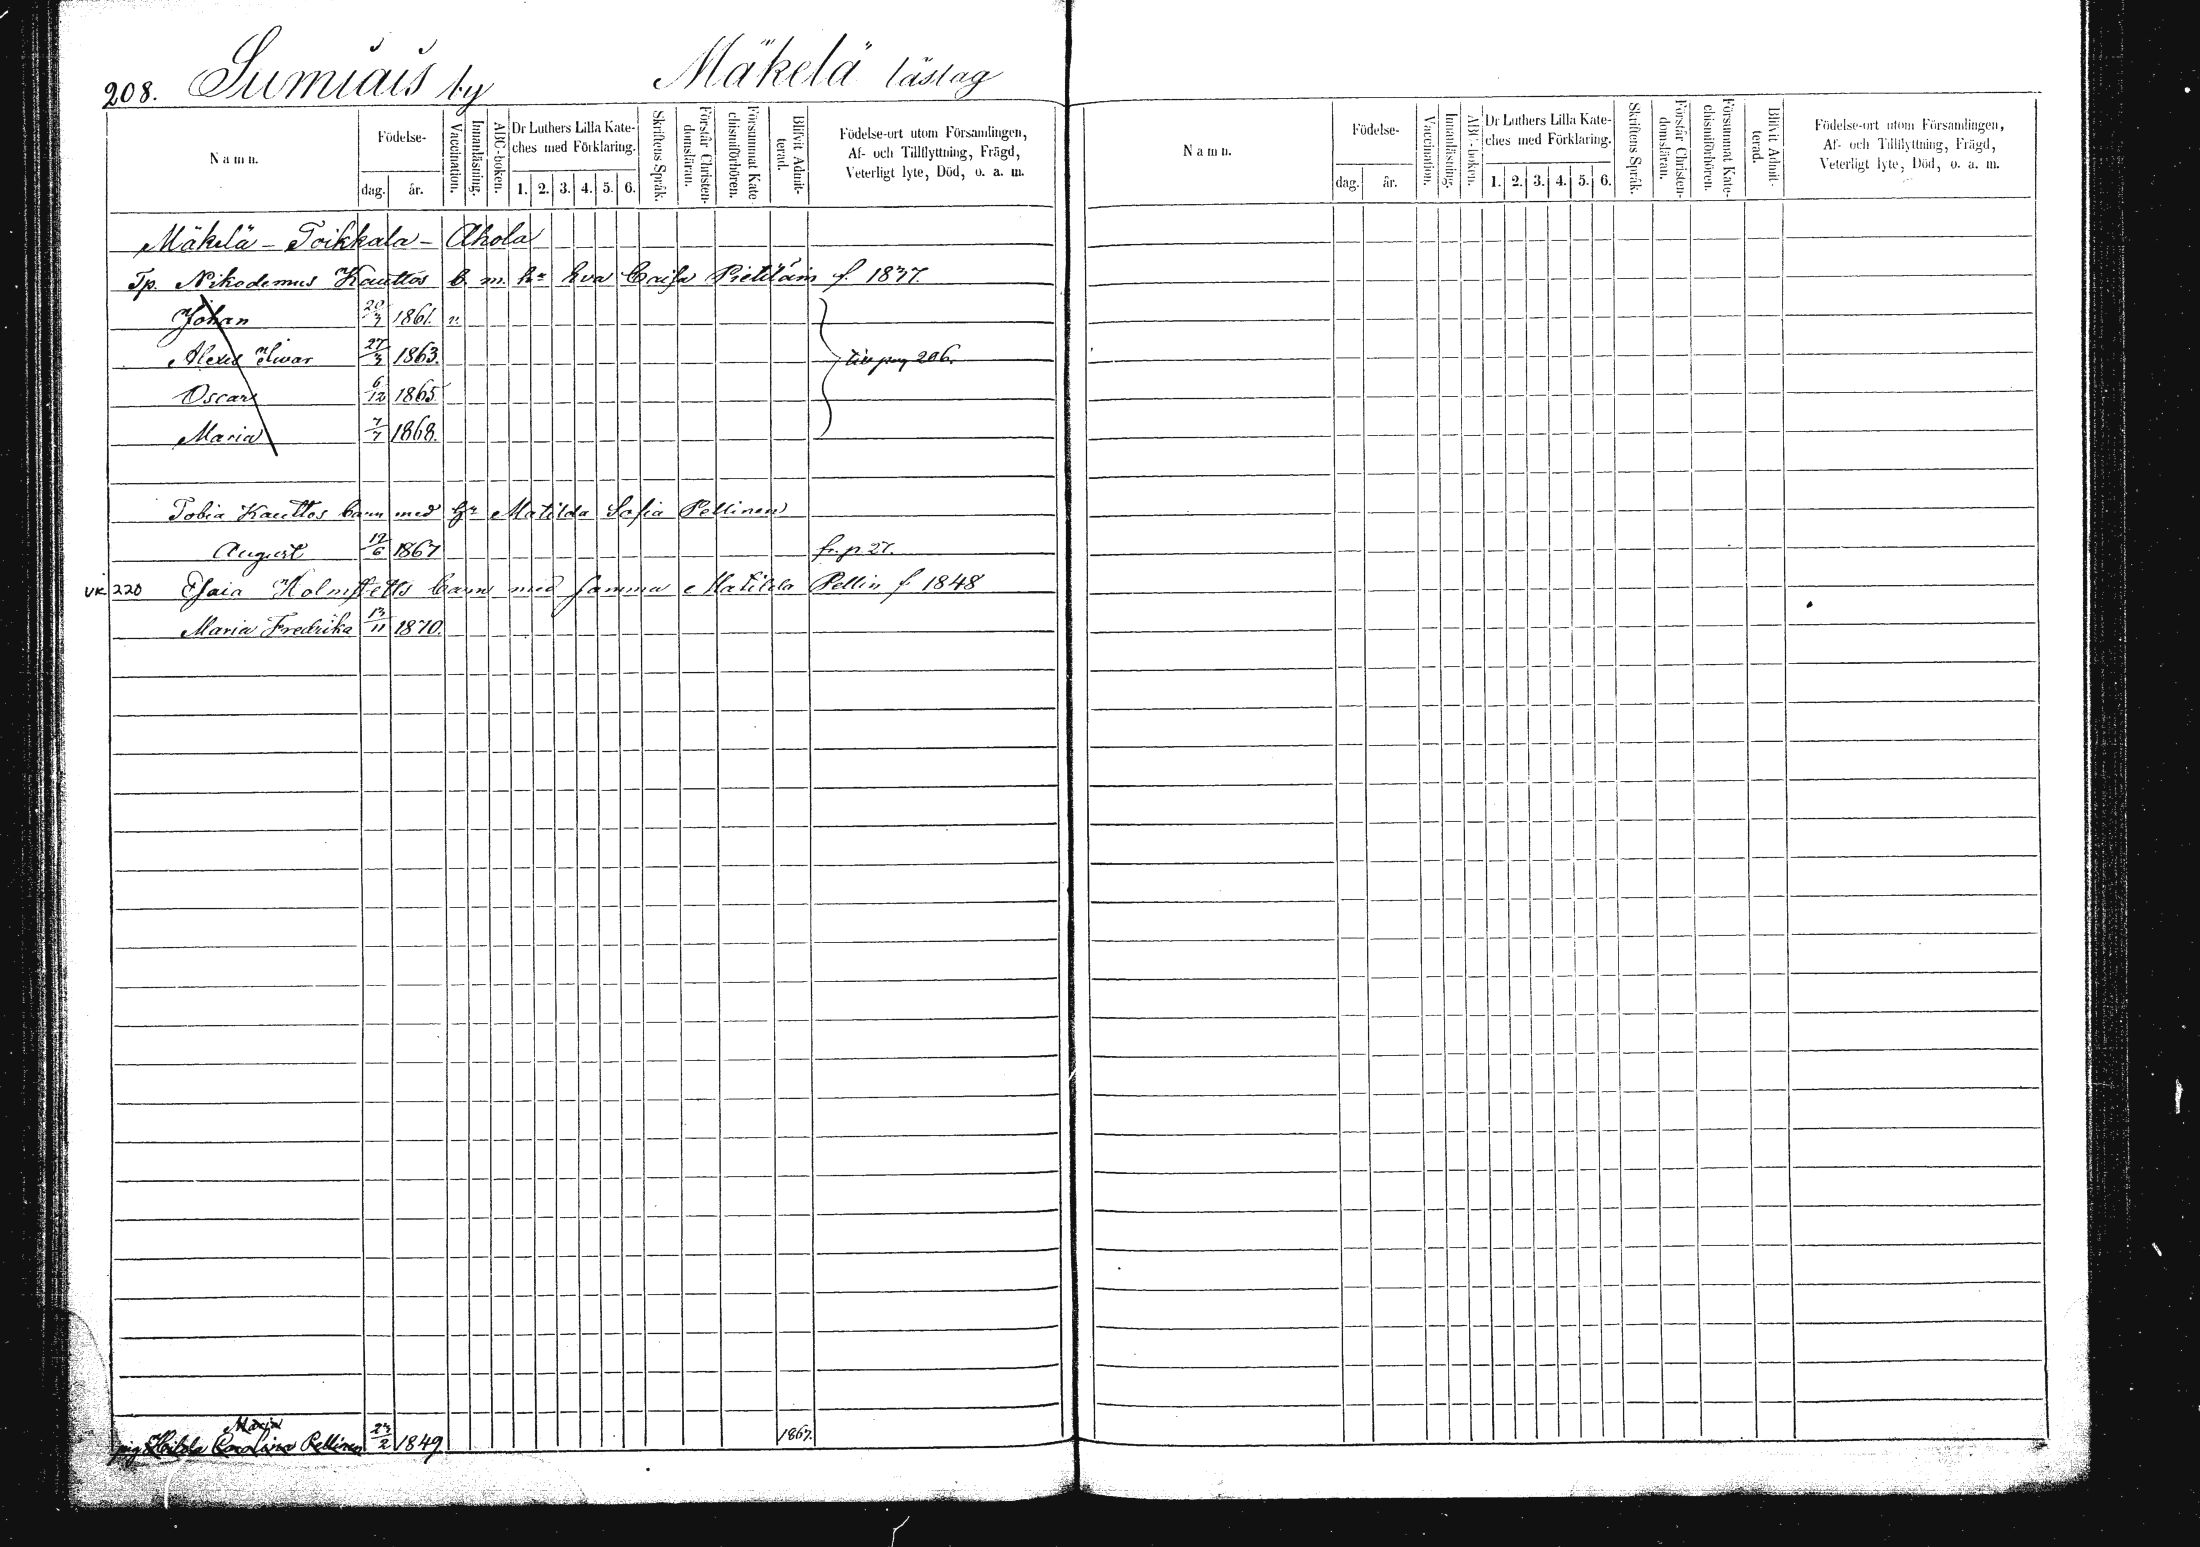 208. Sumiais by Mäkelä läslag
Namn. Födelse- dag. år. Vaccination. Innanläsning. ABC-boken. Dr Luthers Lilla Kateches med Förklaring. 1. 2. 3. 4. 5. 6. Skriftens Språk. Förstår Christendomsläran. Försummat Katechismiförhören. Blifvit Admitterad. Födelse-ort utom Församlingen, Af- och Tillflyttning, Frägd, Veterligt lyte, Död, o. a. m.
Mäkelä - Toikkala - Ahola
Tp. Nikodemus Kauttos b. m. hu Eva Caisa Pietiläin f. 1837.
Johan 20/7 1861. v.
Alexis Iivar 27/3 1863. till pag 206.
Oscar 6/12 1865
Maria 7/7 1868.
Tobia Kauttos barn med hu Matilda Sofia Pellinen
August 19/6 1867 fr. p 27.
VK 220 Esaia Holmstetts barn med samma Matilda Pellin f. 1848
Maria Fredrika 13/11 1870.
Maria
pig Hilda Carolina Pellinen 23/2 1849 1867.
Namn. Födelse- dag. år. Vaccination. Innanläsning. ABC-boken. Dr Luthers Lilla Kateches med Förklaring. 1. 2. 3. 4. 5. 6. Skriftens Språk. Förstår Christendomsläran. Försummat Katechismiförhören. Blifvit Admitterad. Födelse-ort utom Församlingen, Af- och Tillflyttning, Frägd, Veterligt lyte, Död, o. a. m.